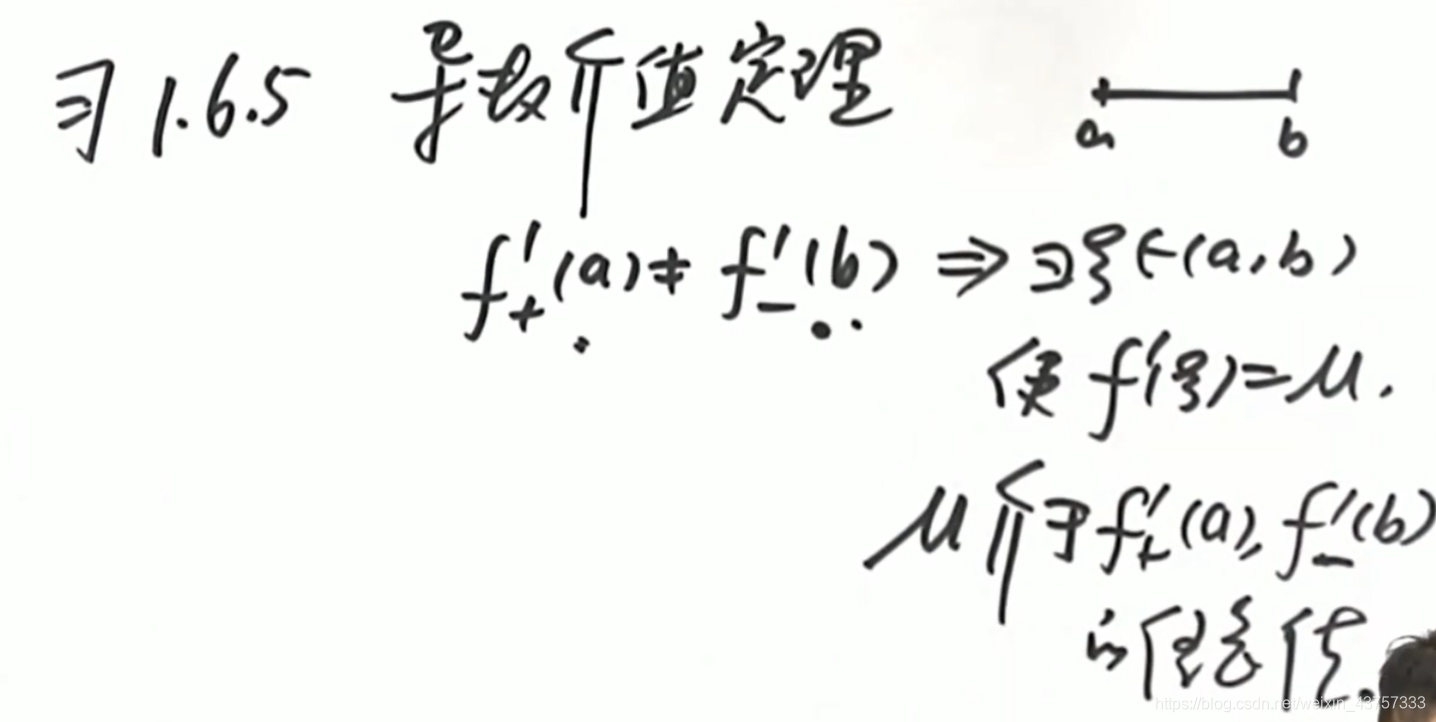 习1.6.5 导数介值定理
a b
f'₊(a)≠f'₋(b) ⇒ ∃ξ∈(a,b)
使 f'(ξ)=μ.
μ介于f'₊(a), f'₋(b)
的任意值.
https://blog.csdn.net/weixin_43757333